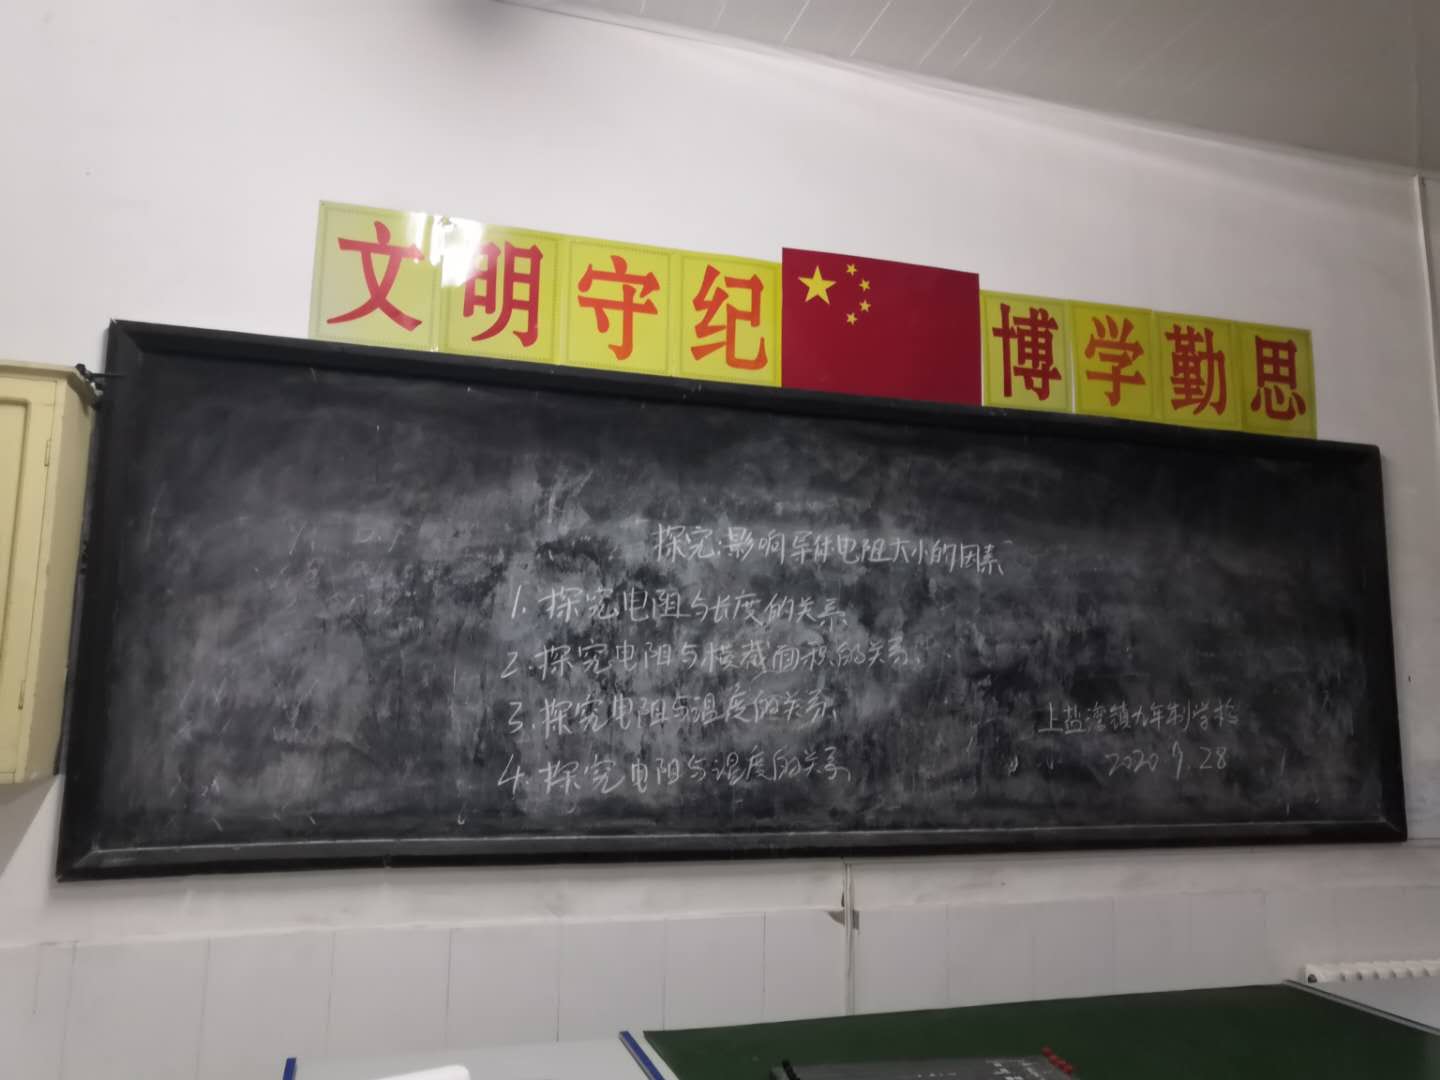 文明守纪 博学勤思
探究:影响导体电阻大小的因素
1.探究电阻与长度的关系
2.探究电阻与横截面积的关系.
3.探究电阻与温度的关系.
4.探究电阻与湿度的关系
上盐湾镇九年制学校
2020 9.28